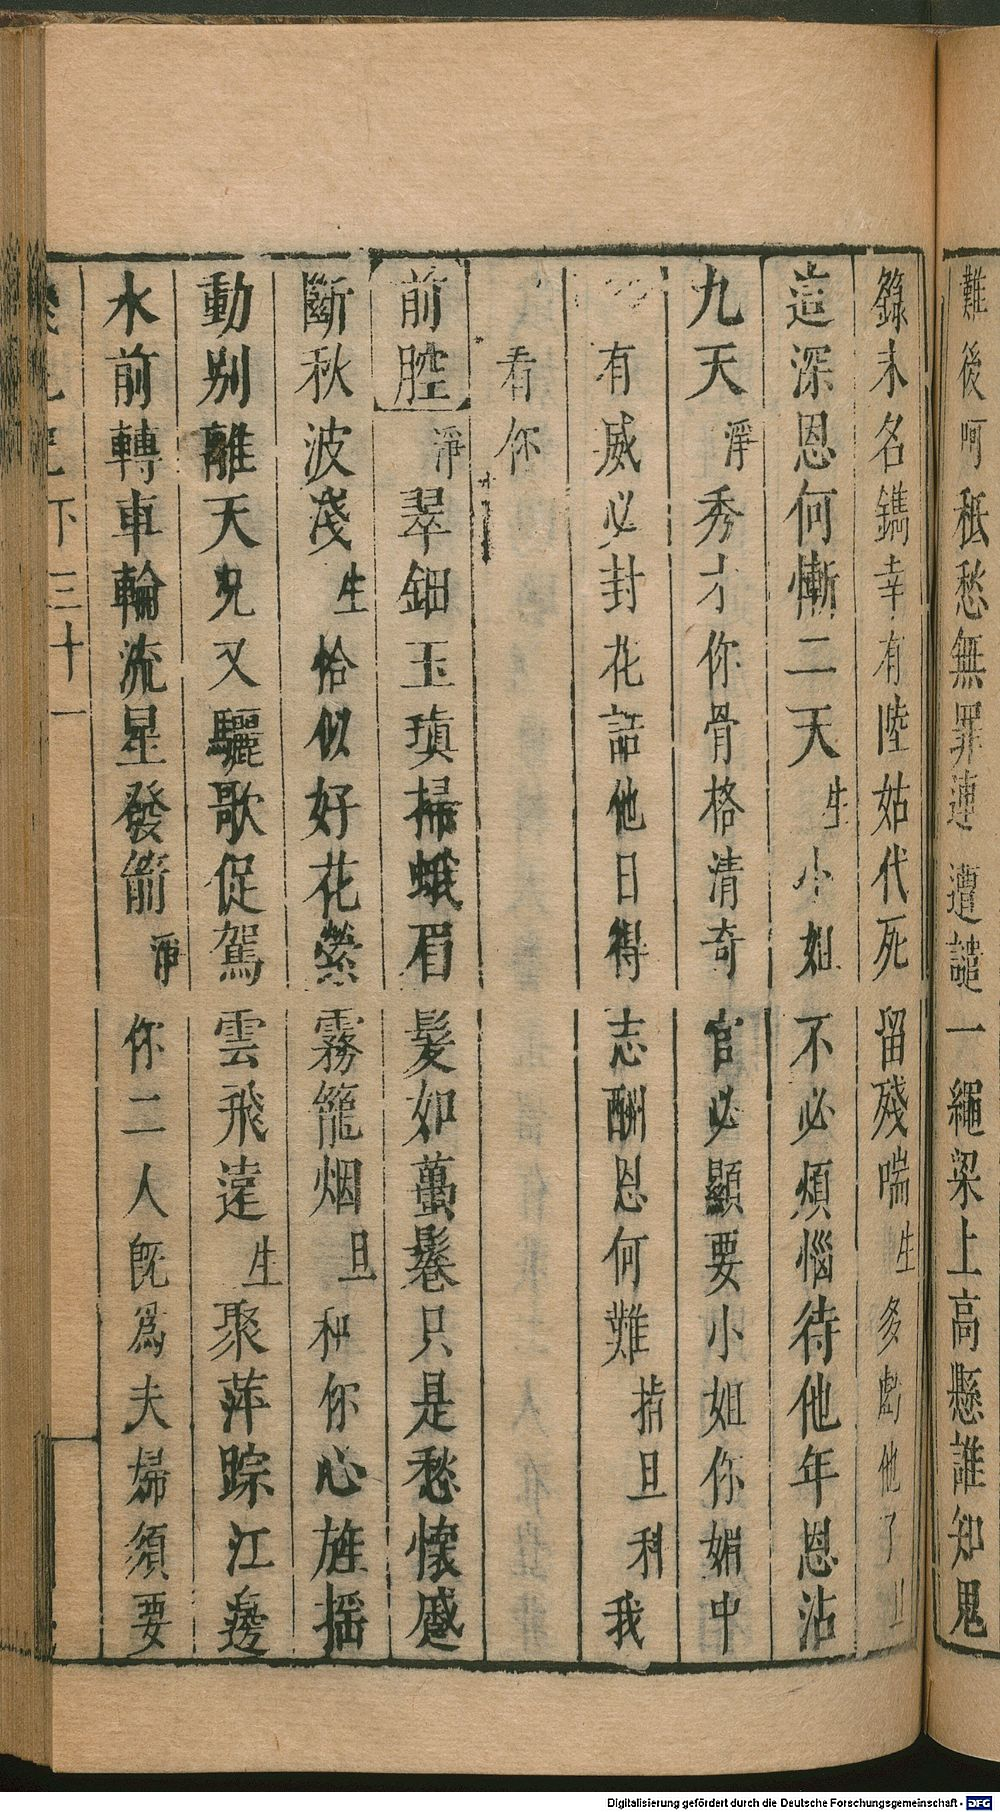 難後呵秪愁無罪連遭譴一繩梁上高懸誰知鬼
籙未名鐫幸有陸姑代死留殘喘生多虧他了旦
這深恩何慚二天生小姐不必煩惱待他年恩沾
九天淨秀才你骨格清奇官必顯要小姐你媚中
有威必封花誥他日得志酬恩何難指旦科我
看你
前腔淨翠鈿玉瑱掃蛾眉髮如蠆鬈只是愁懷慼
斷秋波淺生恰似好花縈霧籠烟旦和你心旌搖
動別離天況又驪歌促駕雲飛遠生聚萍踪江邊
水前轉車輪流星發箭淨你二人既爲夫婦須要
下 三十一
Digitalisierung gefördert durch die Deutsche Forschungsgemeinschaft - DFG